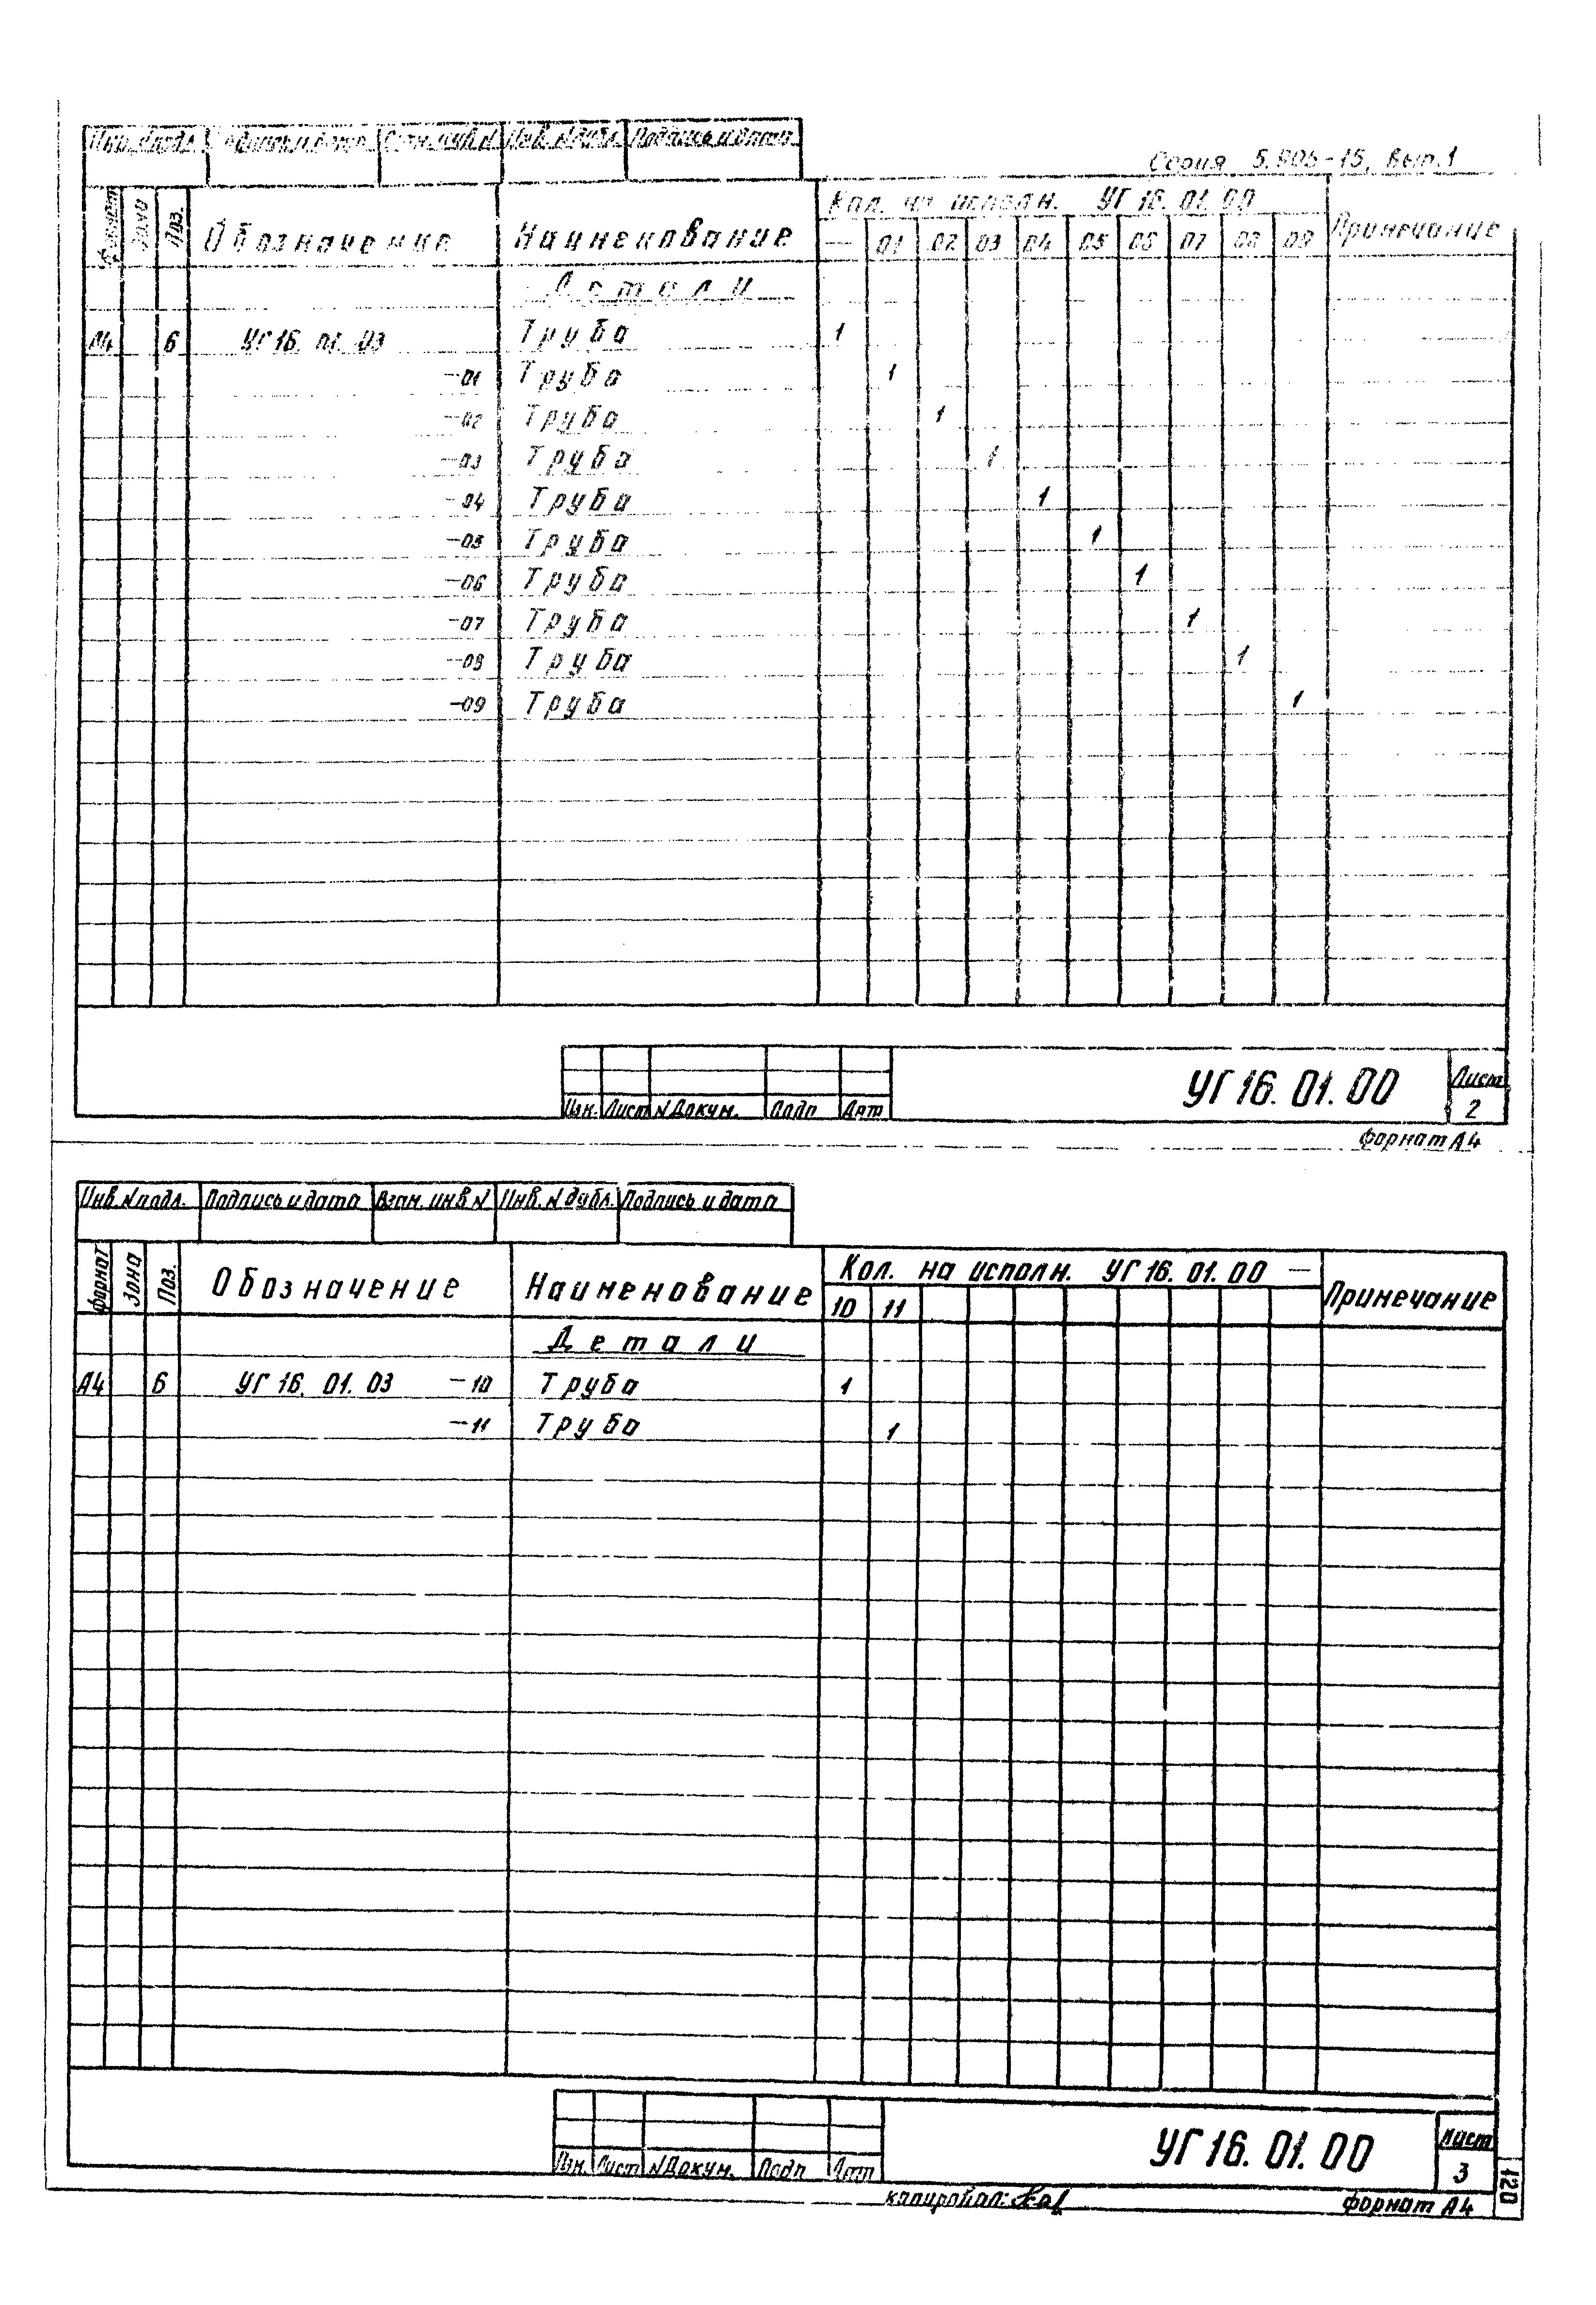 Инв. № подл. Подпись и дата Взам. инв. № Инв. № дубл. Подпись и дата
Серия 5.905-15, вып.1
Формат Зона Поз. Обозначение Наименование Кол. на исполн. УГ 16. 01. 00 Примечание
— 01 02 03 04 05 06 07 08 09
Детали
А4 6 УГ 16. 01. 03 Труба 1
-01 Труба 1
-02 Труба 1
-03 Труба 1
-04 Труба 1
-05 Труба 1
-06 Труба 1
-07 Труба 1
-08 Труба 1
-09 Труба 1
УГ 16. 01. 00 Лист
Изм. Лист № Докум. Подп Дат 2
формат А4
Инв. № подл. Подпись и дата Взам. инв № Инв. № дубл. Подпись и дата
формат Зона Поз. Обозначение Наименование Кол. на исполн. УГ 16. 01. 00 — Примечание
10 11
Детали
А4 6 УГ 16. 01. 03 -10 Труба 1
-11 Труба 1
УГ 16. 01. 00 Лист
Изм. Лист № Докум. Подп Дат 3
копировал: формат А4
120